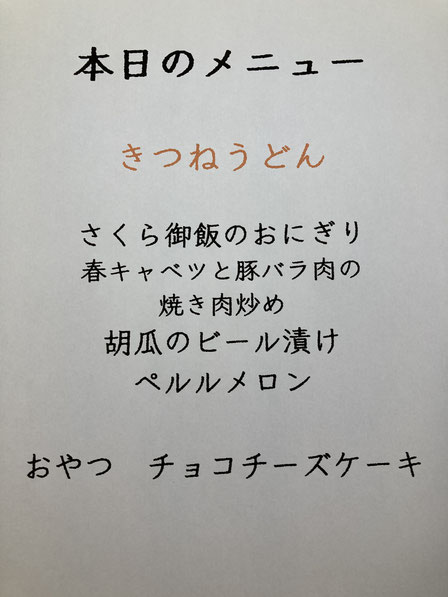 本日のメニュー
きつねうどん
さくら御飯のおにぎり
春キャベツと豚バラ肉の
焼き肉炒め
胡瓜のビール漬け
ペルルメロン
おやつ　チョコチーズケーキ